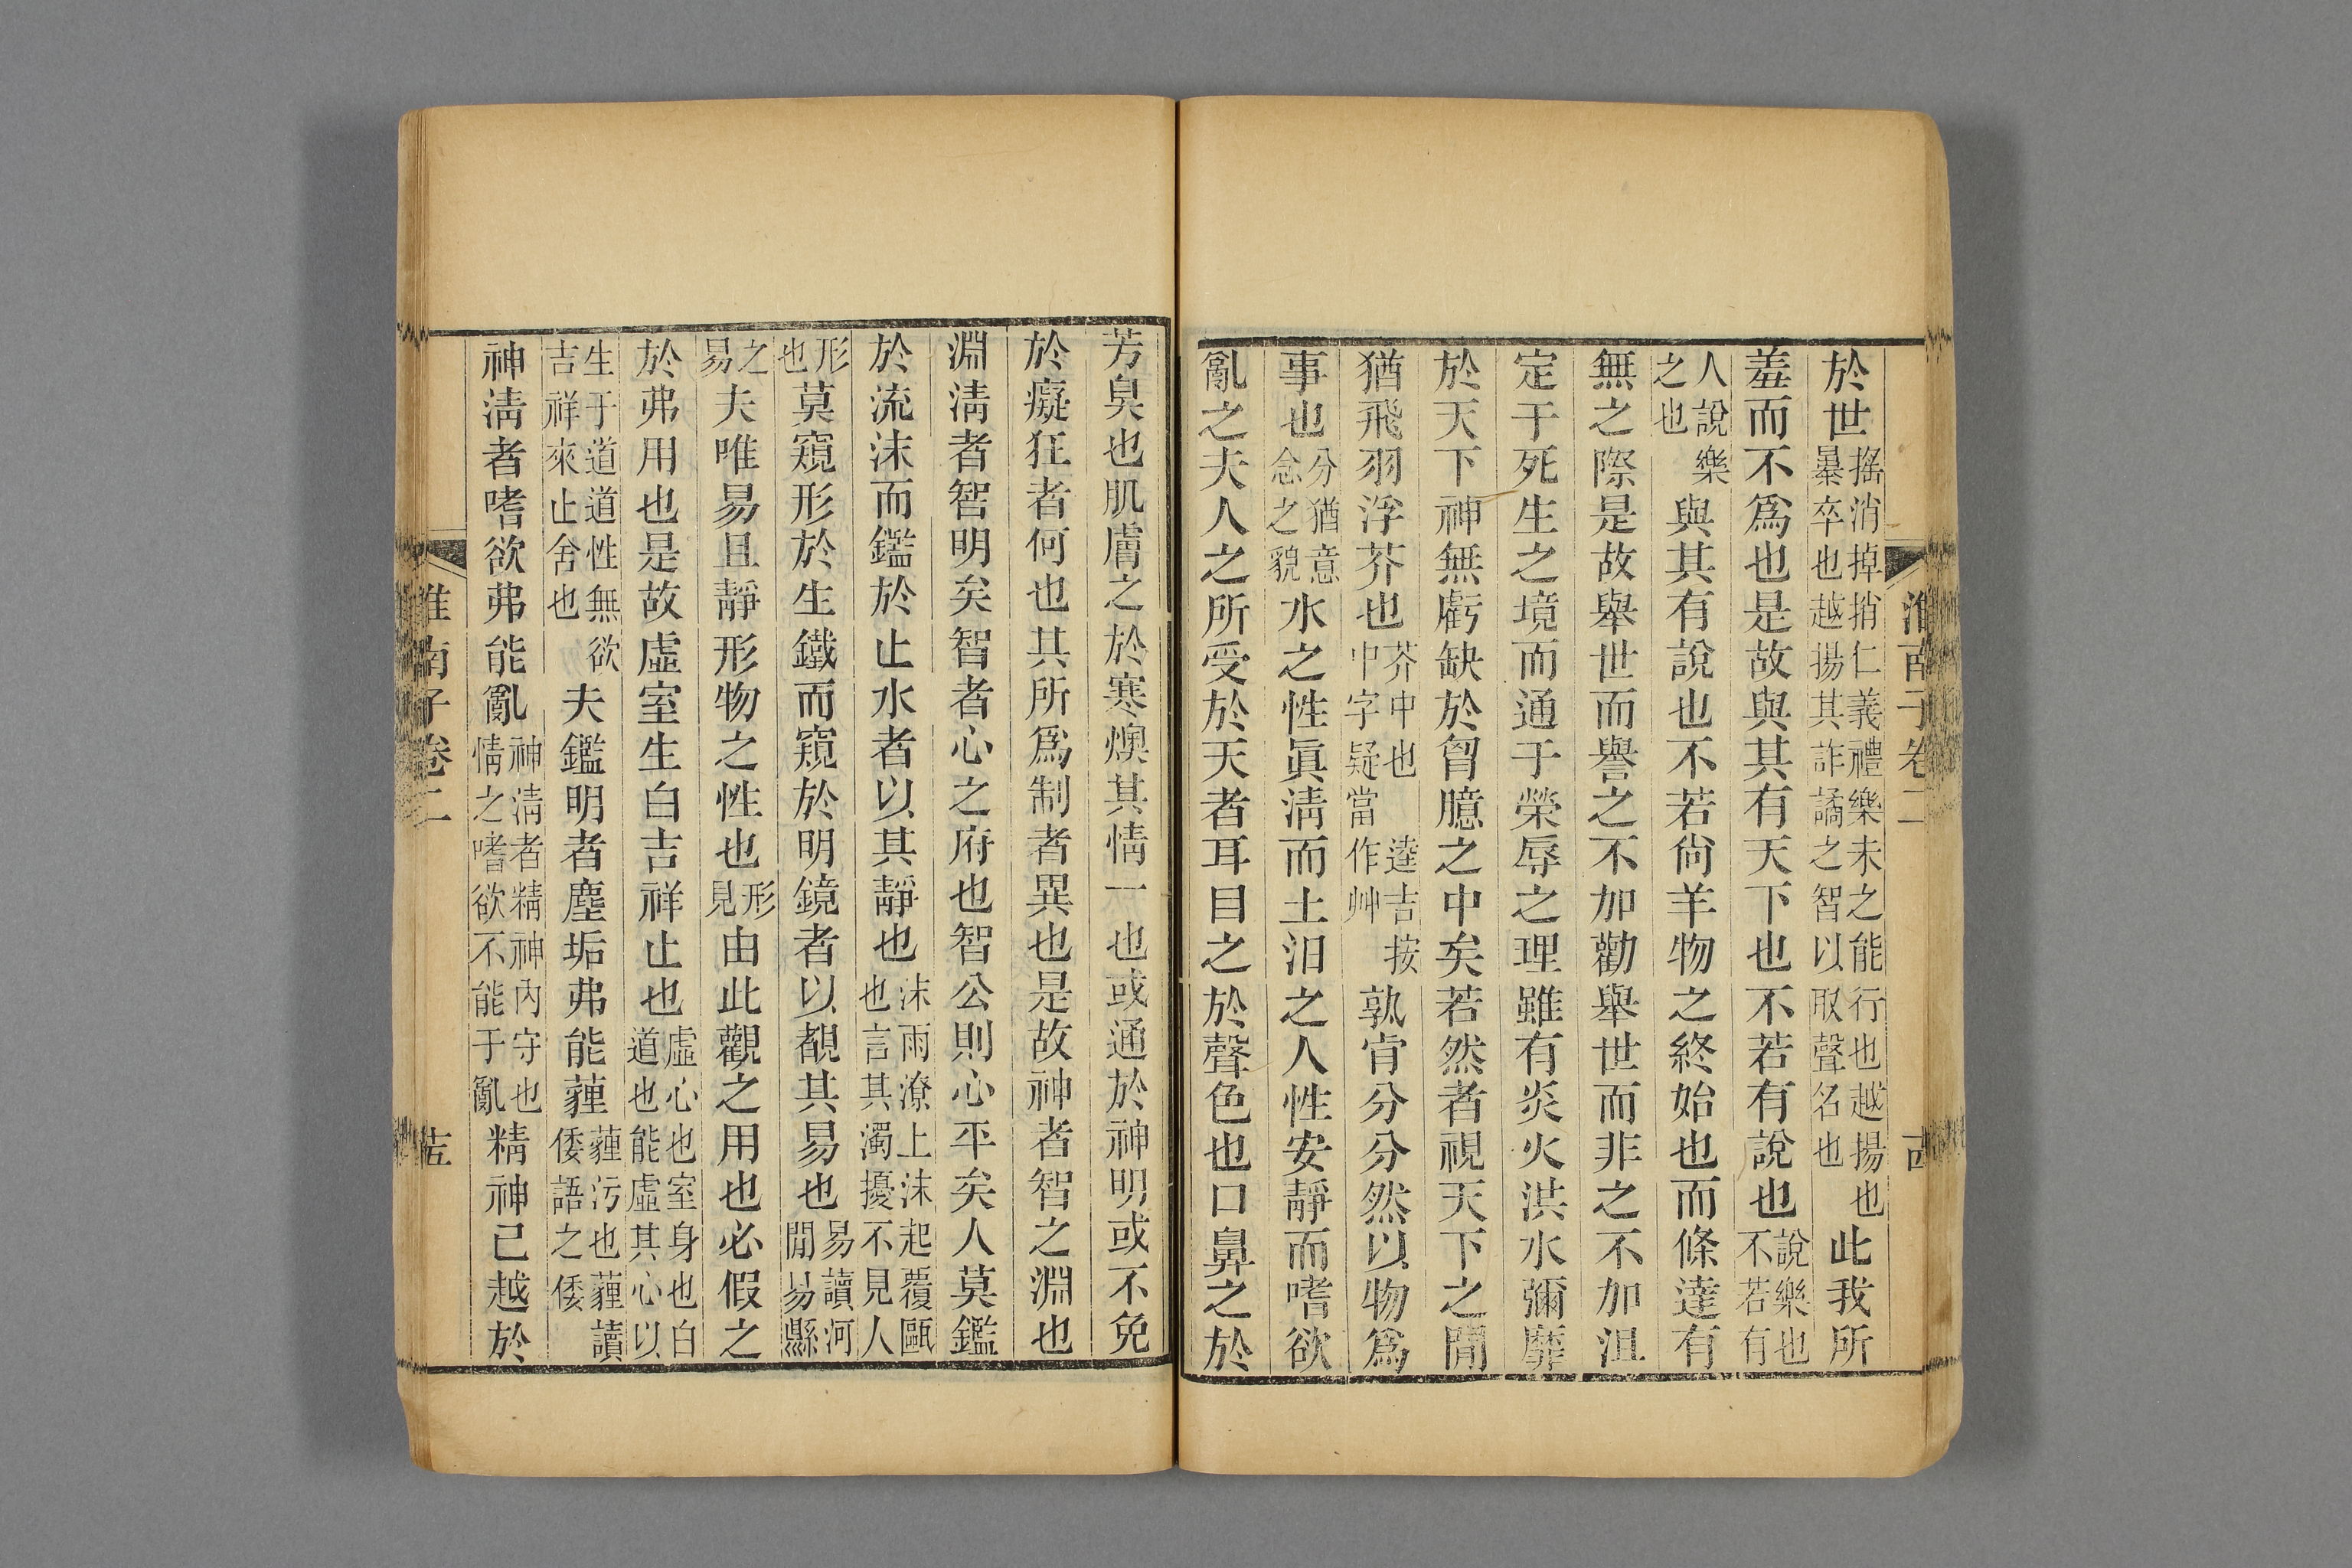 淮南子卷二
於世搖消掉捎仁義禮樂未之能行也越揚也暴卒也越揚其詐譎之智以取聲名也此我所
羞而不爲也是故與其有天下也不若有說也說樂也不若有
人說樂之也與其有說也不若尙羊物之終始也而條達有
無之際是故舉世而譽之不加勸舉世而非之不加沮
定于死生之境而通于榮辱之理雖有炎火洪水彌靡
於天下神無虧缺於胷臆之中矣若然者視天下之閒
猶飛羽浮芥也芥中也逵吉按中字疑當作艸孰肯分分然以物爲
事也分猶意念之貌水之性眞淸而土汩之人性安靜而嗜欲
亂之夫人之所受於天者耳目之於聲色也口鼻之於
芳臭也肌膚之於寒燠其情一也或通於神明或不免
於癡狂者何也其所爲制者異也是故神者智之淵也
淵淸者智明矣智者心之府也智公則心平矣人莫鑑
於流沫而鑑於止水者以其靜也沫雨潦上沫起覆甌也言其濁擾不見人
形也莫窺形於生鐵而窺於明鏡者以覩其易也易讀河閒易縣
之易夫唯易且靜形物之性也形見由此觀之用也必假之
於弗用也是故虛室生白吉祥止也虛心也室身也白道也能虛其心以
生于道道性無欲吉祥來止舍也夫鑑明者塵垢弗能薶薶污也薶讀倭語之倭
神淸者嗜欲弗能亂神淸者精神內守也情之嗜欲不能于亂精神已越於
淮南子卷二